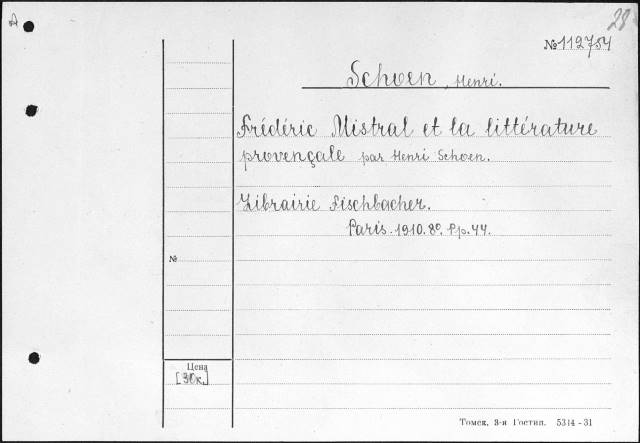 А
28
№ 112754
Schoen, Henri.
Frédéric Mistral et la littérature
provençale par Henri Schoen.
Librairie Fischbacher.
Paris. 1910. 8º. Pp. 44.
№
Цена
[30к.]
Томск, 3-я Гостип. 5314-31